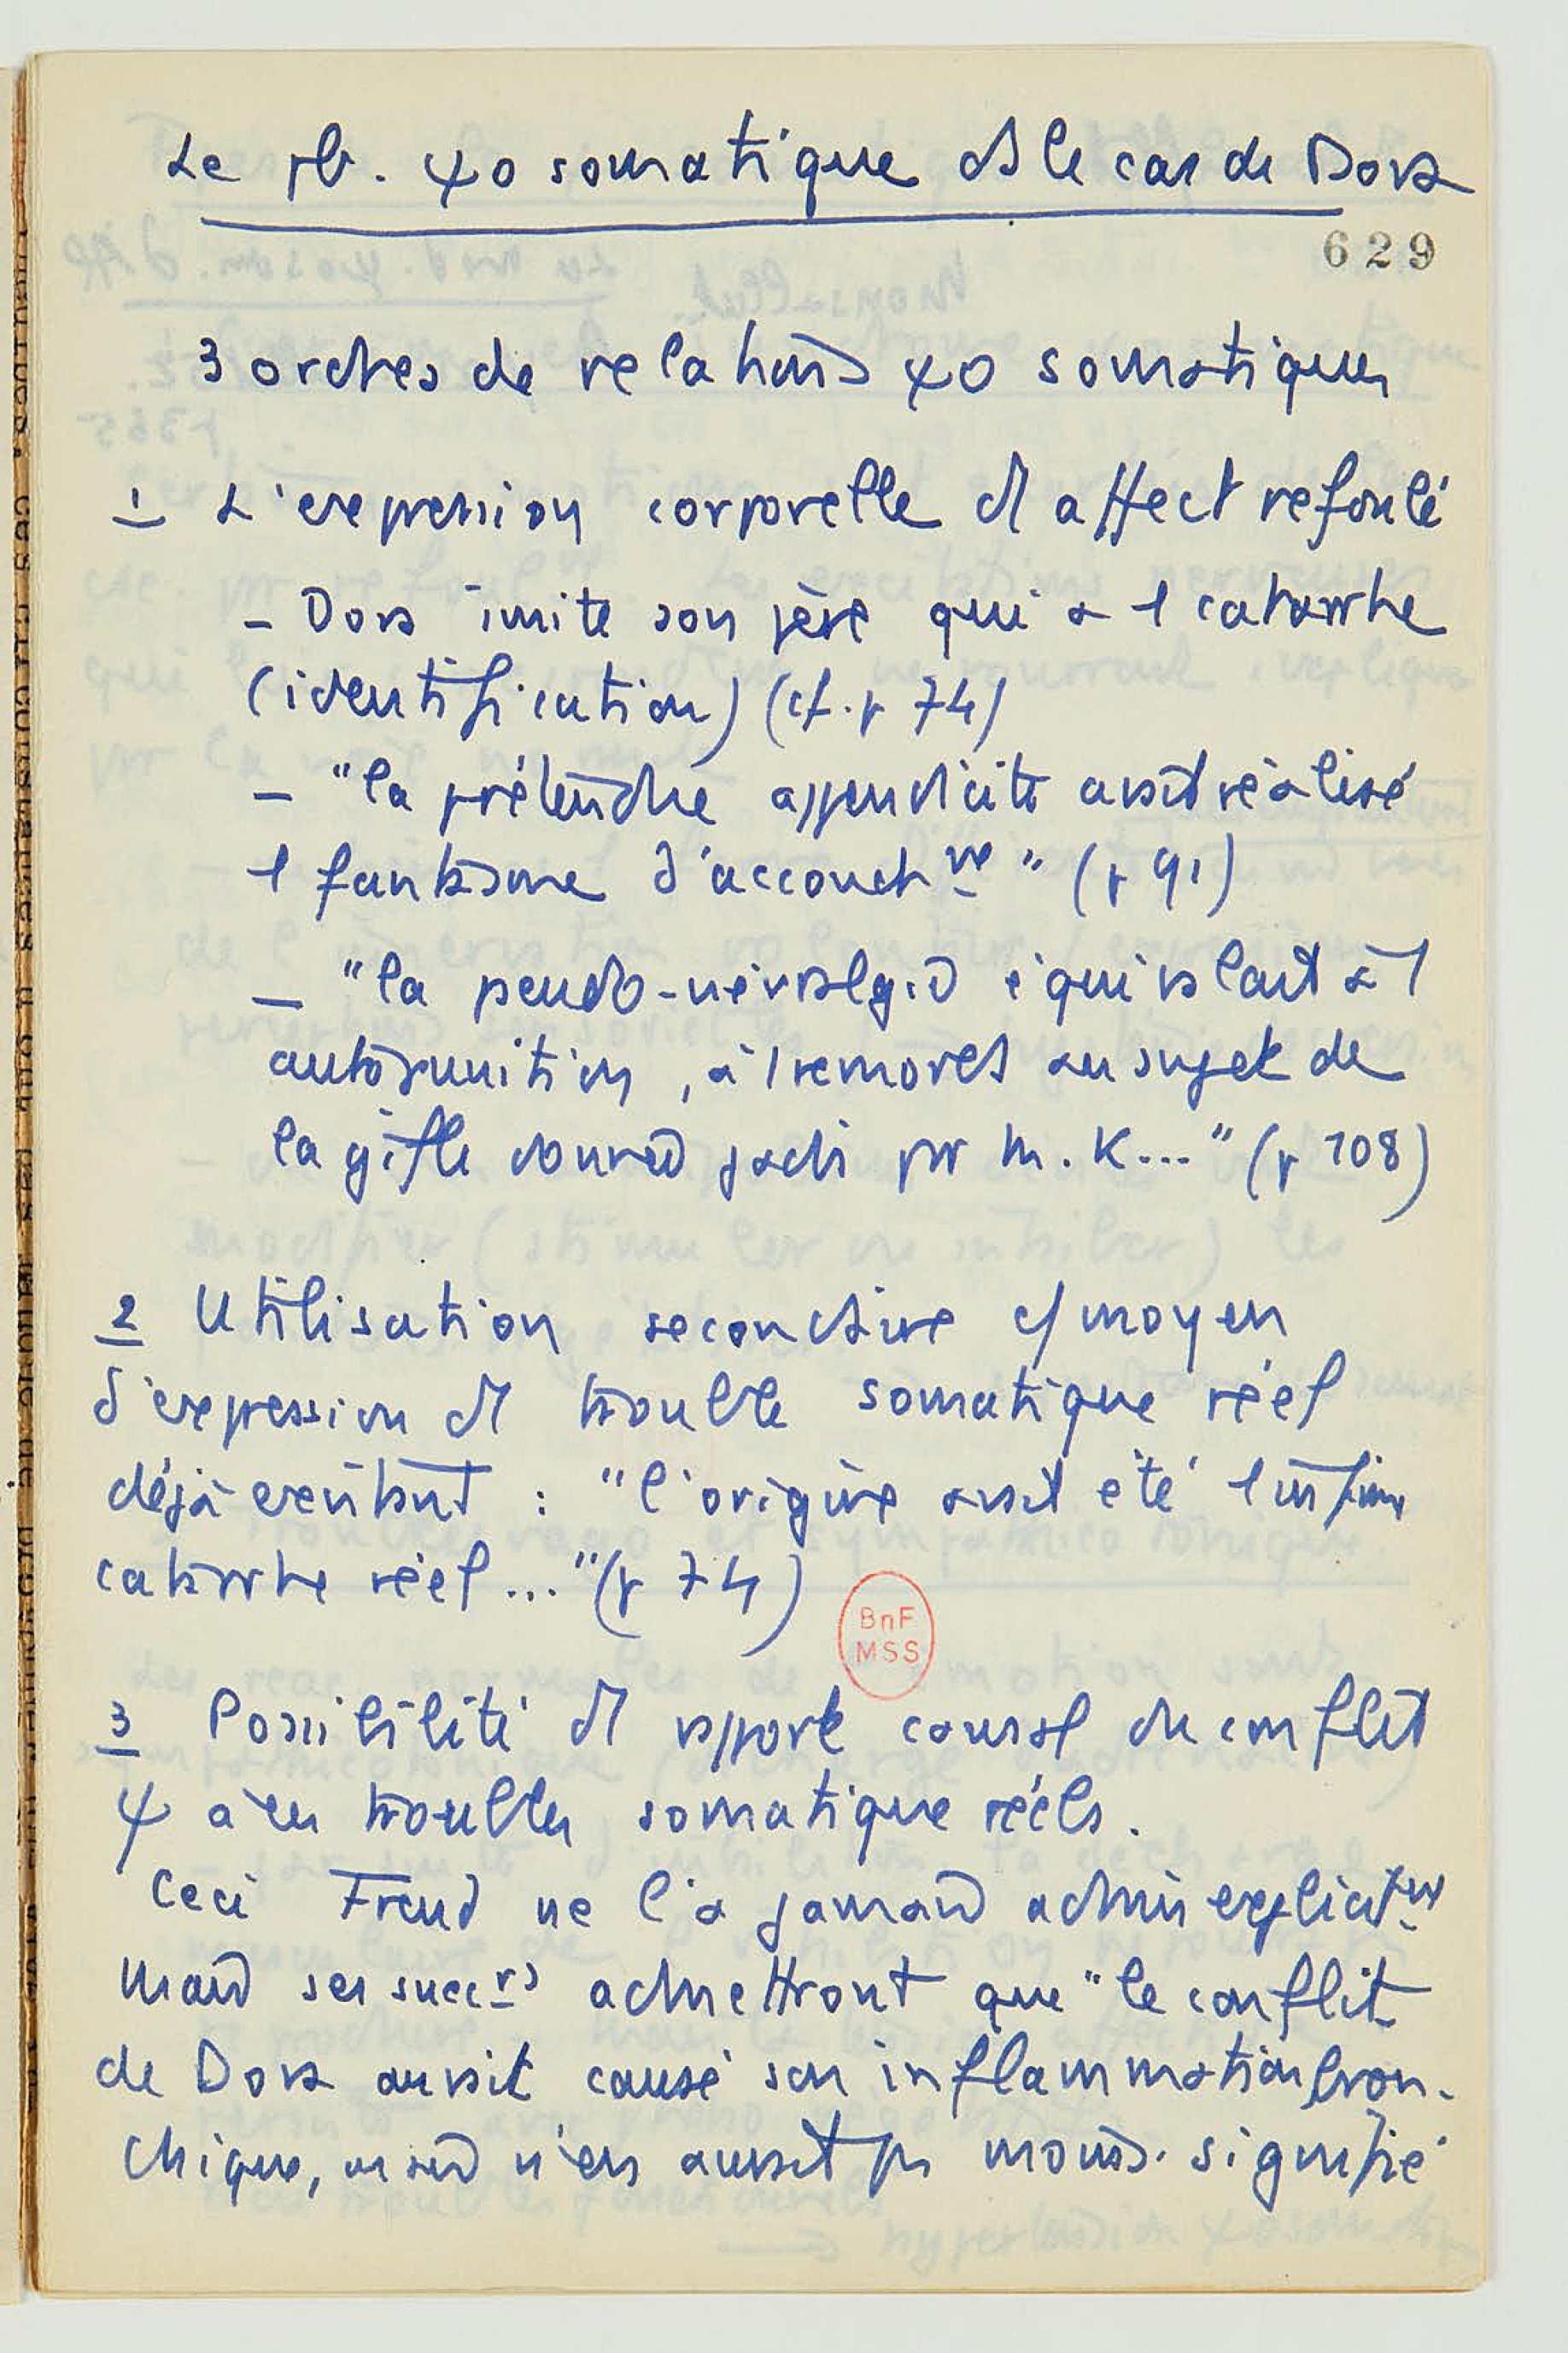 Le pb. ψo somatique ds le cas de Dora
629
3 ordres de relations ψo somatiques
1 L'expression corporelle d'1 affect refoulé
- Dora imite son père qui a 1 catarrhe
(identification) (cf. p 74)
- "la prétendue appendicite avait réalisé
1 fantasme d'accouchmt" (p 91)
- "la pseudo-névralgie équivalait à 1
autopunition, à 1 remords au sujet de
la gifle donnée jadis par M. K..." (p 108)
2 Utilisation secondaire c/ moyen
d'expression d'1 trouble somatique réel
déjà existant : "l'origine avait été 1 infime
catarrhe réel..." (p 74)
BnF
MSS
3 Possibilité d'1 rapport causal du conflit
ψ à des troubles somatique réels.
Ceci Freud ne l'a jamais admis explicitmt
mais ses succrs admettront que "le conflit
de Dora aurait causé son inflammation bron-
chique, mais n'en aurait pas moins signifié